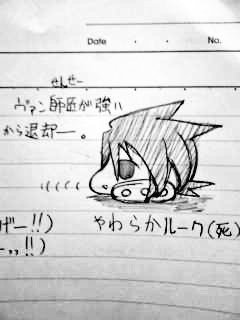 Date ・ ・ No.
せんせー
ヴァン師匠が強い
から退却ー。
げー!!)
ー,,!!)
やわらかルーク(死)